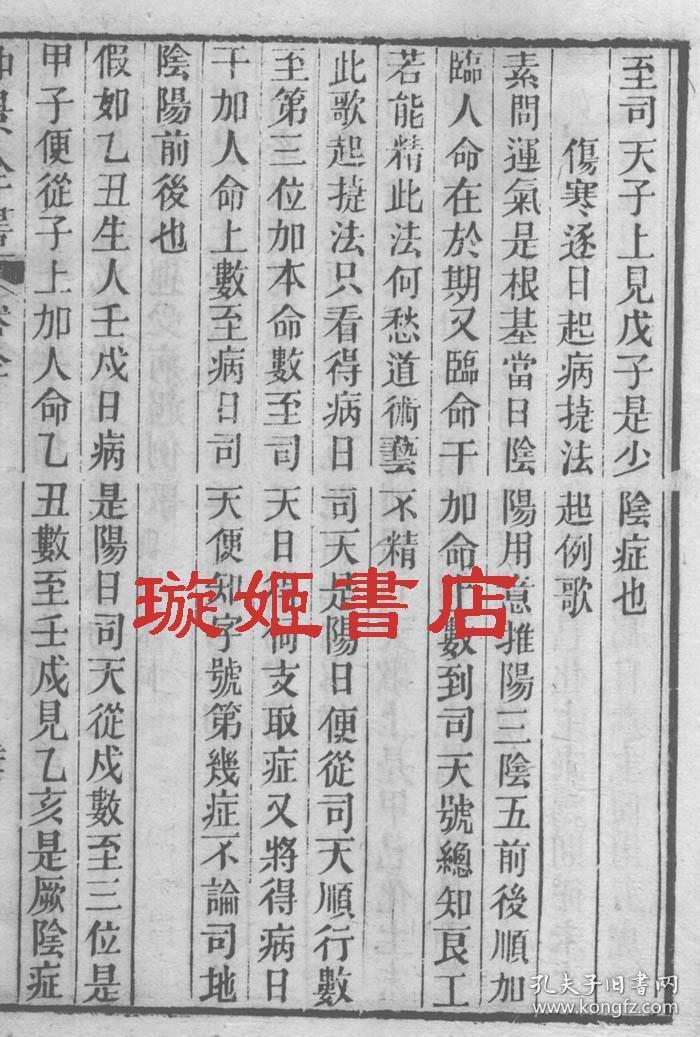 至司天子上見戊子是少陰症也
傷寒逐日起病㨗法起例歌
素問運氣是根基當日陰陽用意推陽三陰五前後順加
臨人命在於期又臨命干加命上數到司天號總知良工
若能精此法何愁道術藝不精
此歌起㨗法只看得病日司天是陽日便從司天順行數
至第三位加本命數至司天日得何支取症又將得病日
干加人命上數至病日司天便知字號第幾症不論司地
陰陽前後也
假如乙丑生人壬戍日病是陽日司天從戍數至三位是
甲子便從子上加人命乙丑數至壬戍見乙亥是厥陰症
璇姬書店
孔夫子旧书网
www.kongfz.com